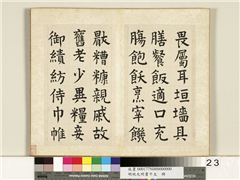 畏屬耳垣墻具
膳餐飯適口充
腸飽飫烹宰饑
猒糟糠親戚故
舊老少異糧妾
御績紡侍巾帷
23